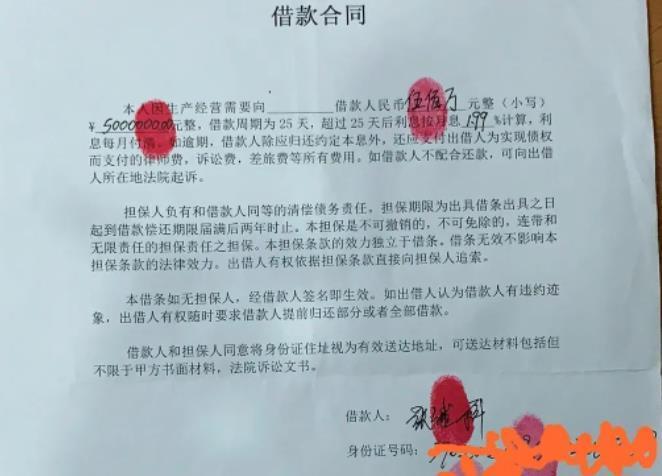 借款合同
本人因生产经营需要向________借款人民币伍佰万元整（小写）
￥5000000.00元整，借款周期为25天，超过25天后利息按月息1.99%计算，利
息每月付清。如逾期，借款人除应归还约定本息外，还应支付出借人为实现债权
而支付的律师费，诉讼费，差旅费等所有费用。如借款人不配合还款，可向出借
人所在地法院起诉。
担保人负有和借款人同等的清偿债务责任，担保期限为出具借条出具之日
起到借款偿还期限届满后两年时止。本担保是不可撤销的，不可免除的，连带和
无限责任的担保责任之担保。本担保条款的效力独立于借条。借条无效不影响本
担保条款的法律效力。出借人有权依据担保条款直接向担保人追索。
本借条如无担保人，经借款人签名即生效。如出借人认为借款人有违约迹
象，出借人有权随时要求借款人提前归还部分或者全部借款。
借款人和担保人同意将身份证住址视为有效送达地址，可送达材料包括但
不限于甲方书面材料，法院诉讼文书。
借款人：张继科
身份证号码：